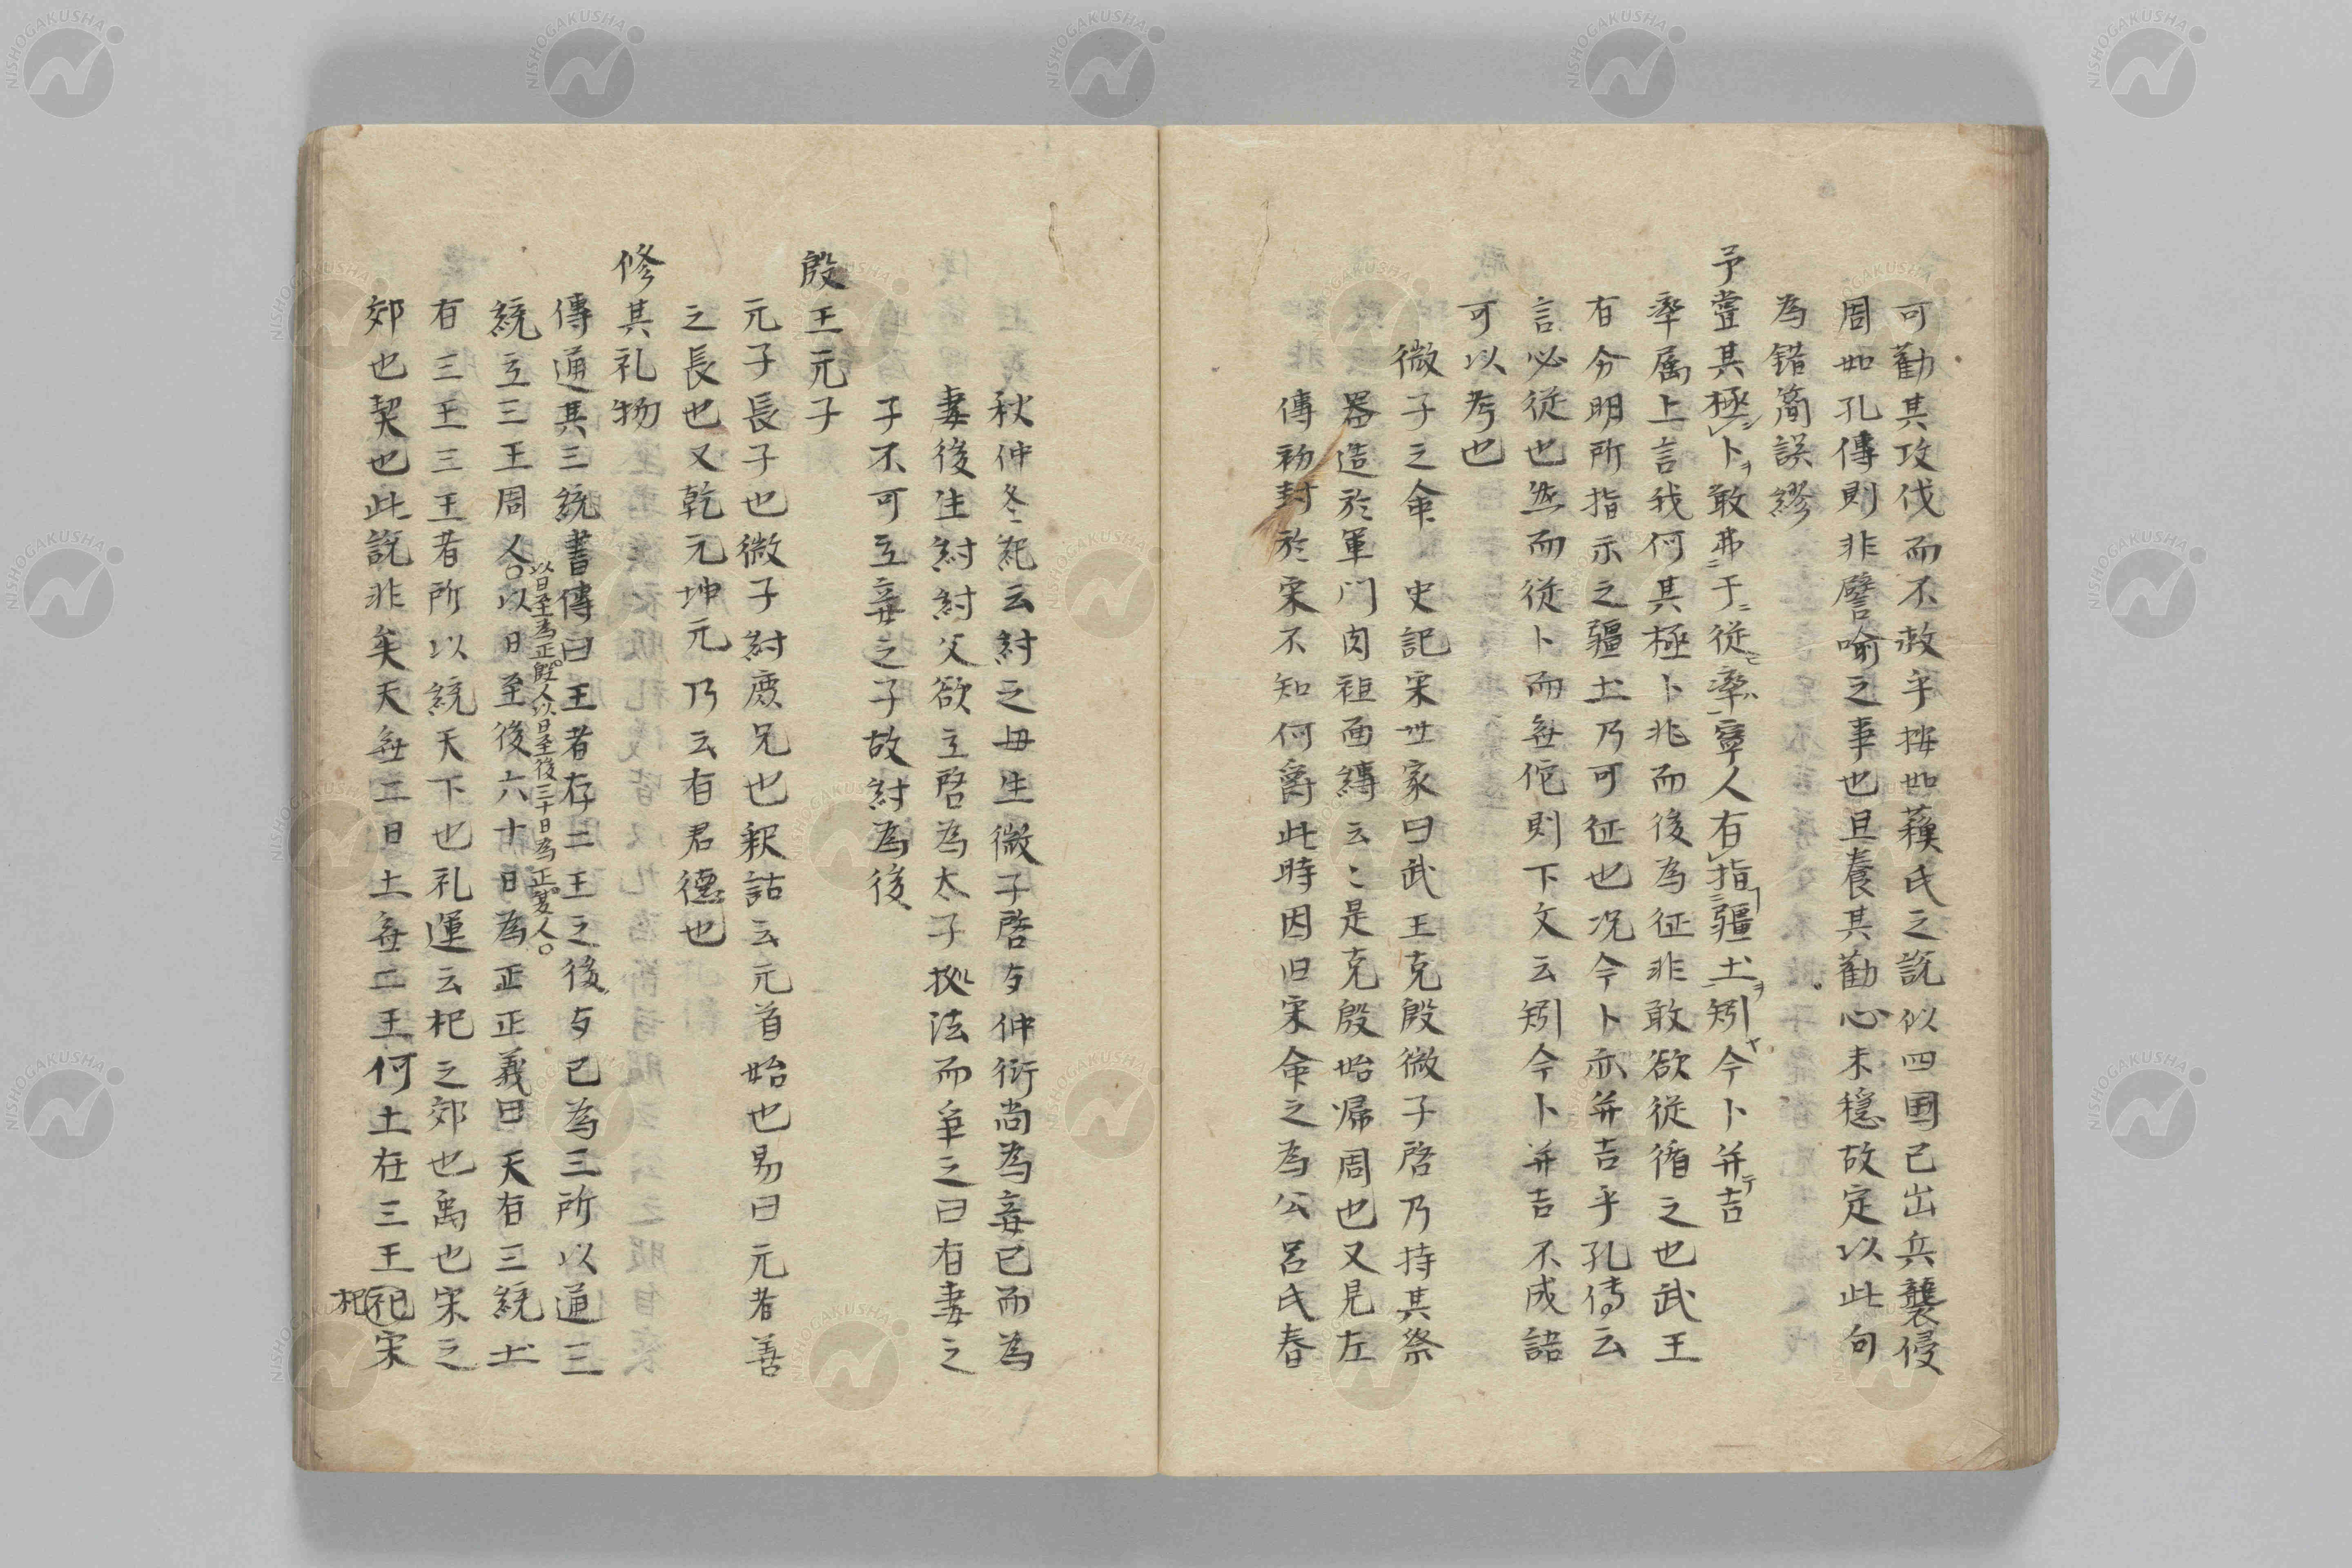 可勸其攻伐而不救乎按如蘓氏之説似四国已出兵襲侵
周如孔傳則非譬喻之事也且養其勸心未穏故定以此句
為錯簡誤繆
予曷其極卜敢弗于從率寧人有指疆土矧今卜并吉
率属上言我何其極卜兆而後為征非敢欲從循之也武王
有分明所指示之疆土乃可征也况今卜亦并吉乎孔傳云
言必從也然而從卜而無佗則下文云矧今卜并吉不成語
可以考也
微子之命　史記宋世家曰武王克殷微子啓乃持其祭
器造於軍門肉袒面縛云〻是克殷始帰周也又見左
傳初封於宋不知何爵此時因旧宋命之為公呂氏春
秋仲冬紀云紂之母生微子啓与仲衍尚為妾已而為
妻後生紂紂父欲立啓為太子拠法而争之曰有妻之
子不可立妾之子故紂為後
殷王元子
元子長子也微子紂庶兄也釈詁云元首始也易曰元者善
之長也又乾元坤元乃云有君德也
修其礼物
傳通其三統書傳曰王者存二王之後与己為三所以通三
統立三王周人○以日至後六十日為正正義曰天有三統土
以日至為正殷人以日至後三十日為正夏人○
有三王三王者所以統天下也礼運云杞之郊也禹也宋之
郊也契也此説非矣天無二日土無二王何土在三王祀宋
杞